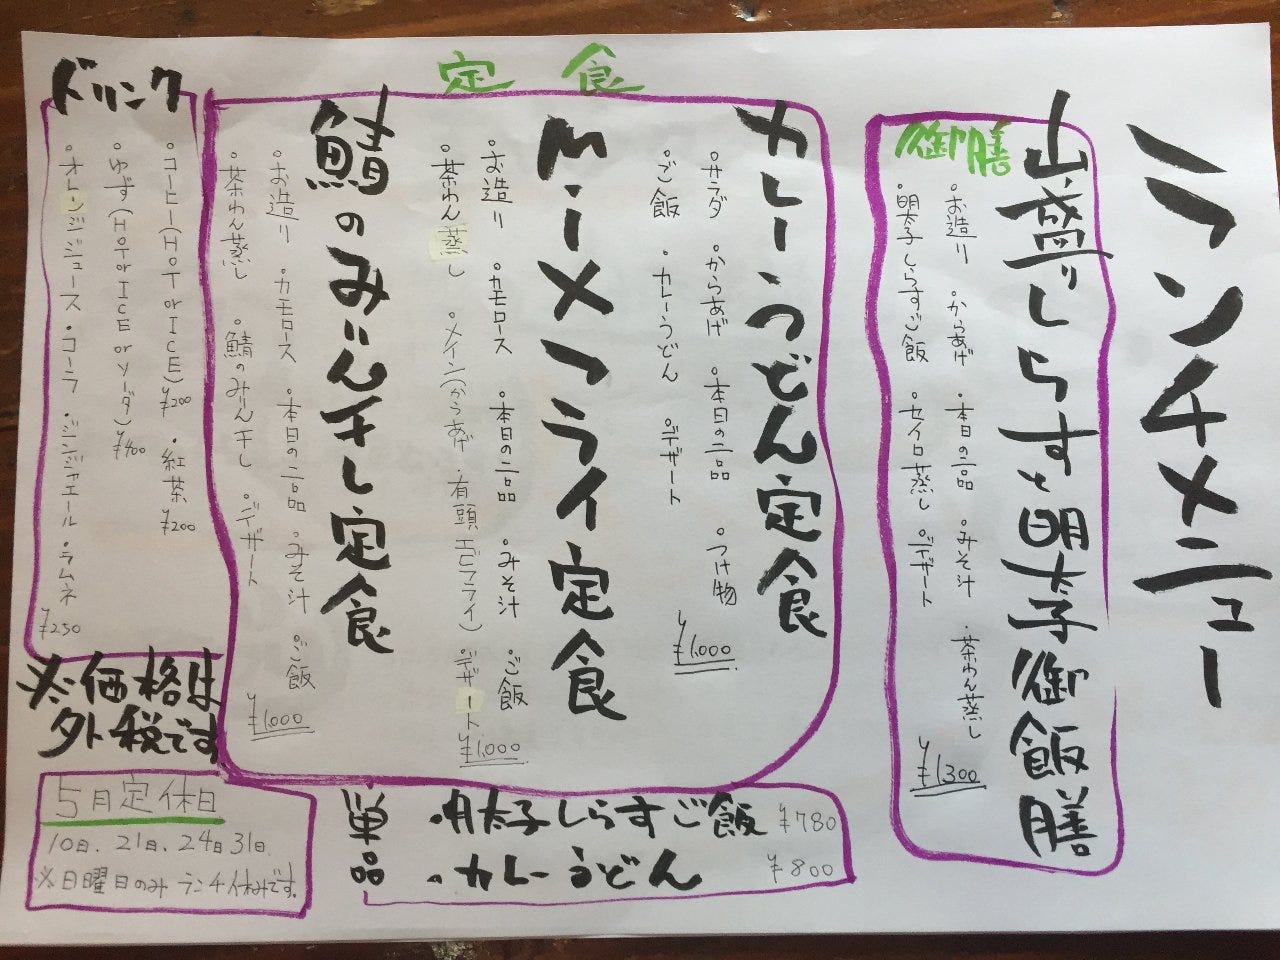 ランチメニュー
山盛りしらすと明太子御飯膳
御膳
・お造り ・からあげ ・本日の二品 ・みそ汁 ・茶わん蒸し
・明太子しらすご飯 ・セイロ蒸し ・デザート
¥1,300
定食
カレーうどん定食
・サラダ ・からあげ ・本日の二品 ・つけ物
・ご飯 ・カレーうどん ・デザート
¥1,000
M・メフライ定食
・お造り ・カモロース ・本日の二品 ・みそ汁 ・ご飯
・茶わん蒸し ・メイン(からあげ・有頭エビフライ) ・デザート
¥1,000
鯖のみりん干し定食
・お造り ・カモロース ・本日の二品 ・みそ汁 ・ご飯
・茶わん蒸し ・鯖のみりん干し ・デザート
¥1,000
単品
・明太子しらすご飯 ¥780
・カレーうどん ¥800
ドリンク
・コーヒー(HOT or ICE)¥200 ・紅茶 ¥200
・ゆず(HOT or ICE or ソーダ)¥400
・オレンジジュース ・コーラ ・ジンジャエール ・ラムネ ¥250
※価格は
外税です
5月定休日
10日、21日、24日31日
※日曜日のみランチ休みです。